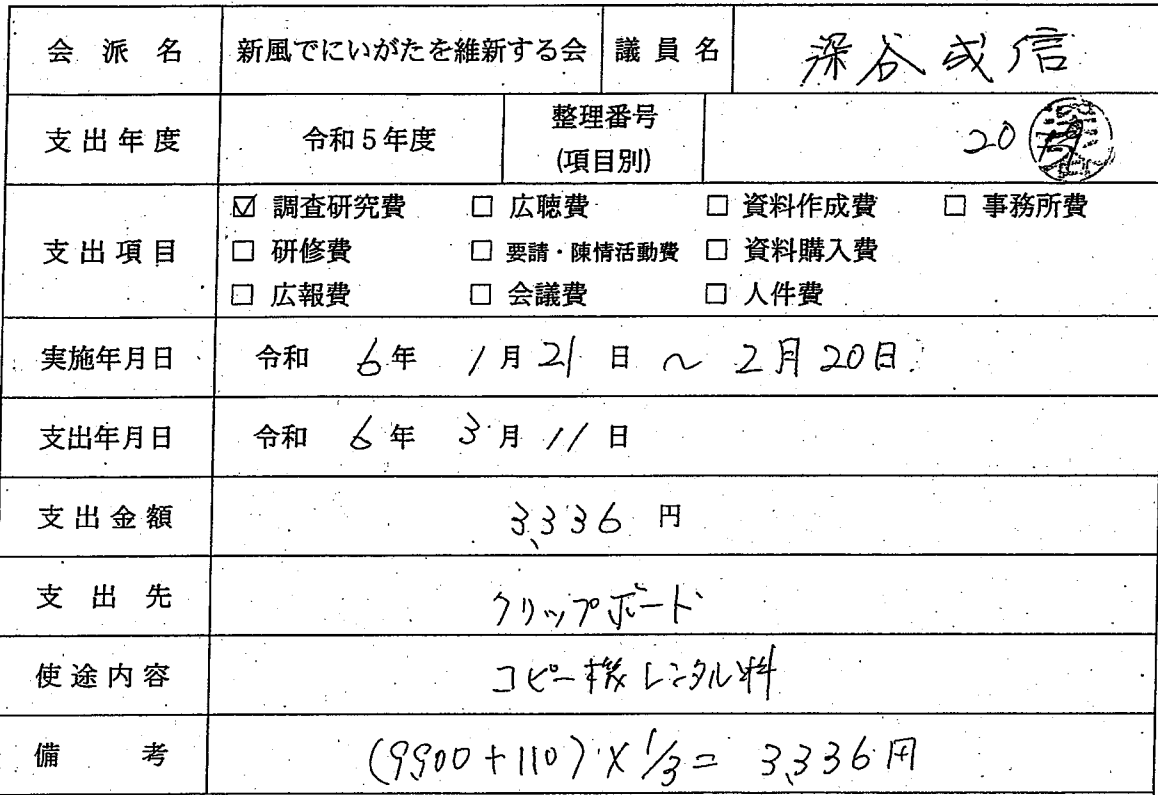 会派名 新風でにいがたを維新する会 議員名 深谷成信
支出年度 令和5年度 整理番号(項目別) 20
支出項目 ☑ 調査研究費 □ 広聴費 □ 資料作成費 □ 事務所費
□ 研修費 □ 要請・陳情活動費 □ 資料購入費
□ 広報費 □ 会議費 □ 人件費
実施年月日 令和 6年 1月 21日 ~ 2月20日
支出年月日 令和 6年 3月 11日
支出金額 3,336 円
支出先 クリップボード
使途内容 コピー機レンタル料
備考 (9,900+110)×1/3= 3,336円